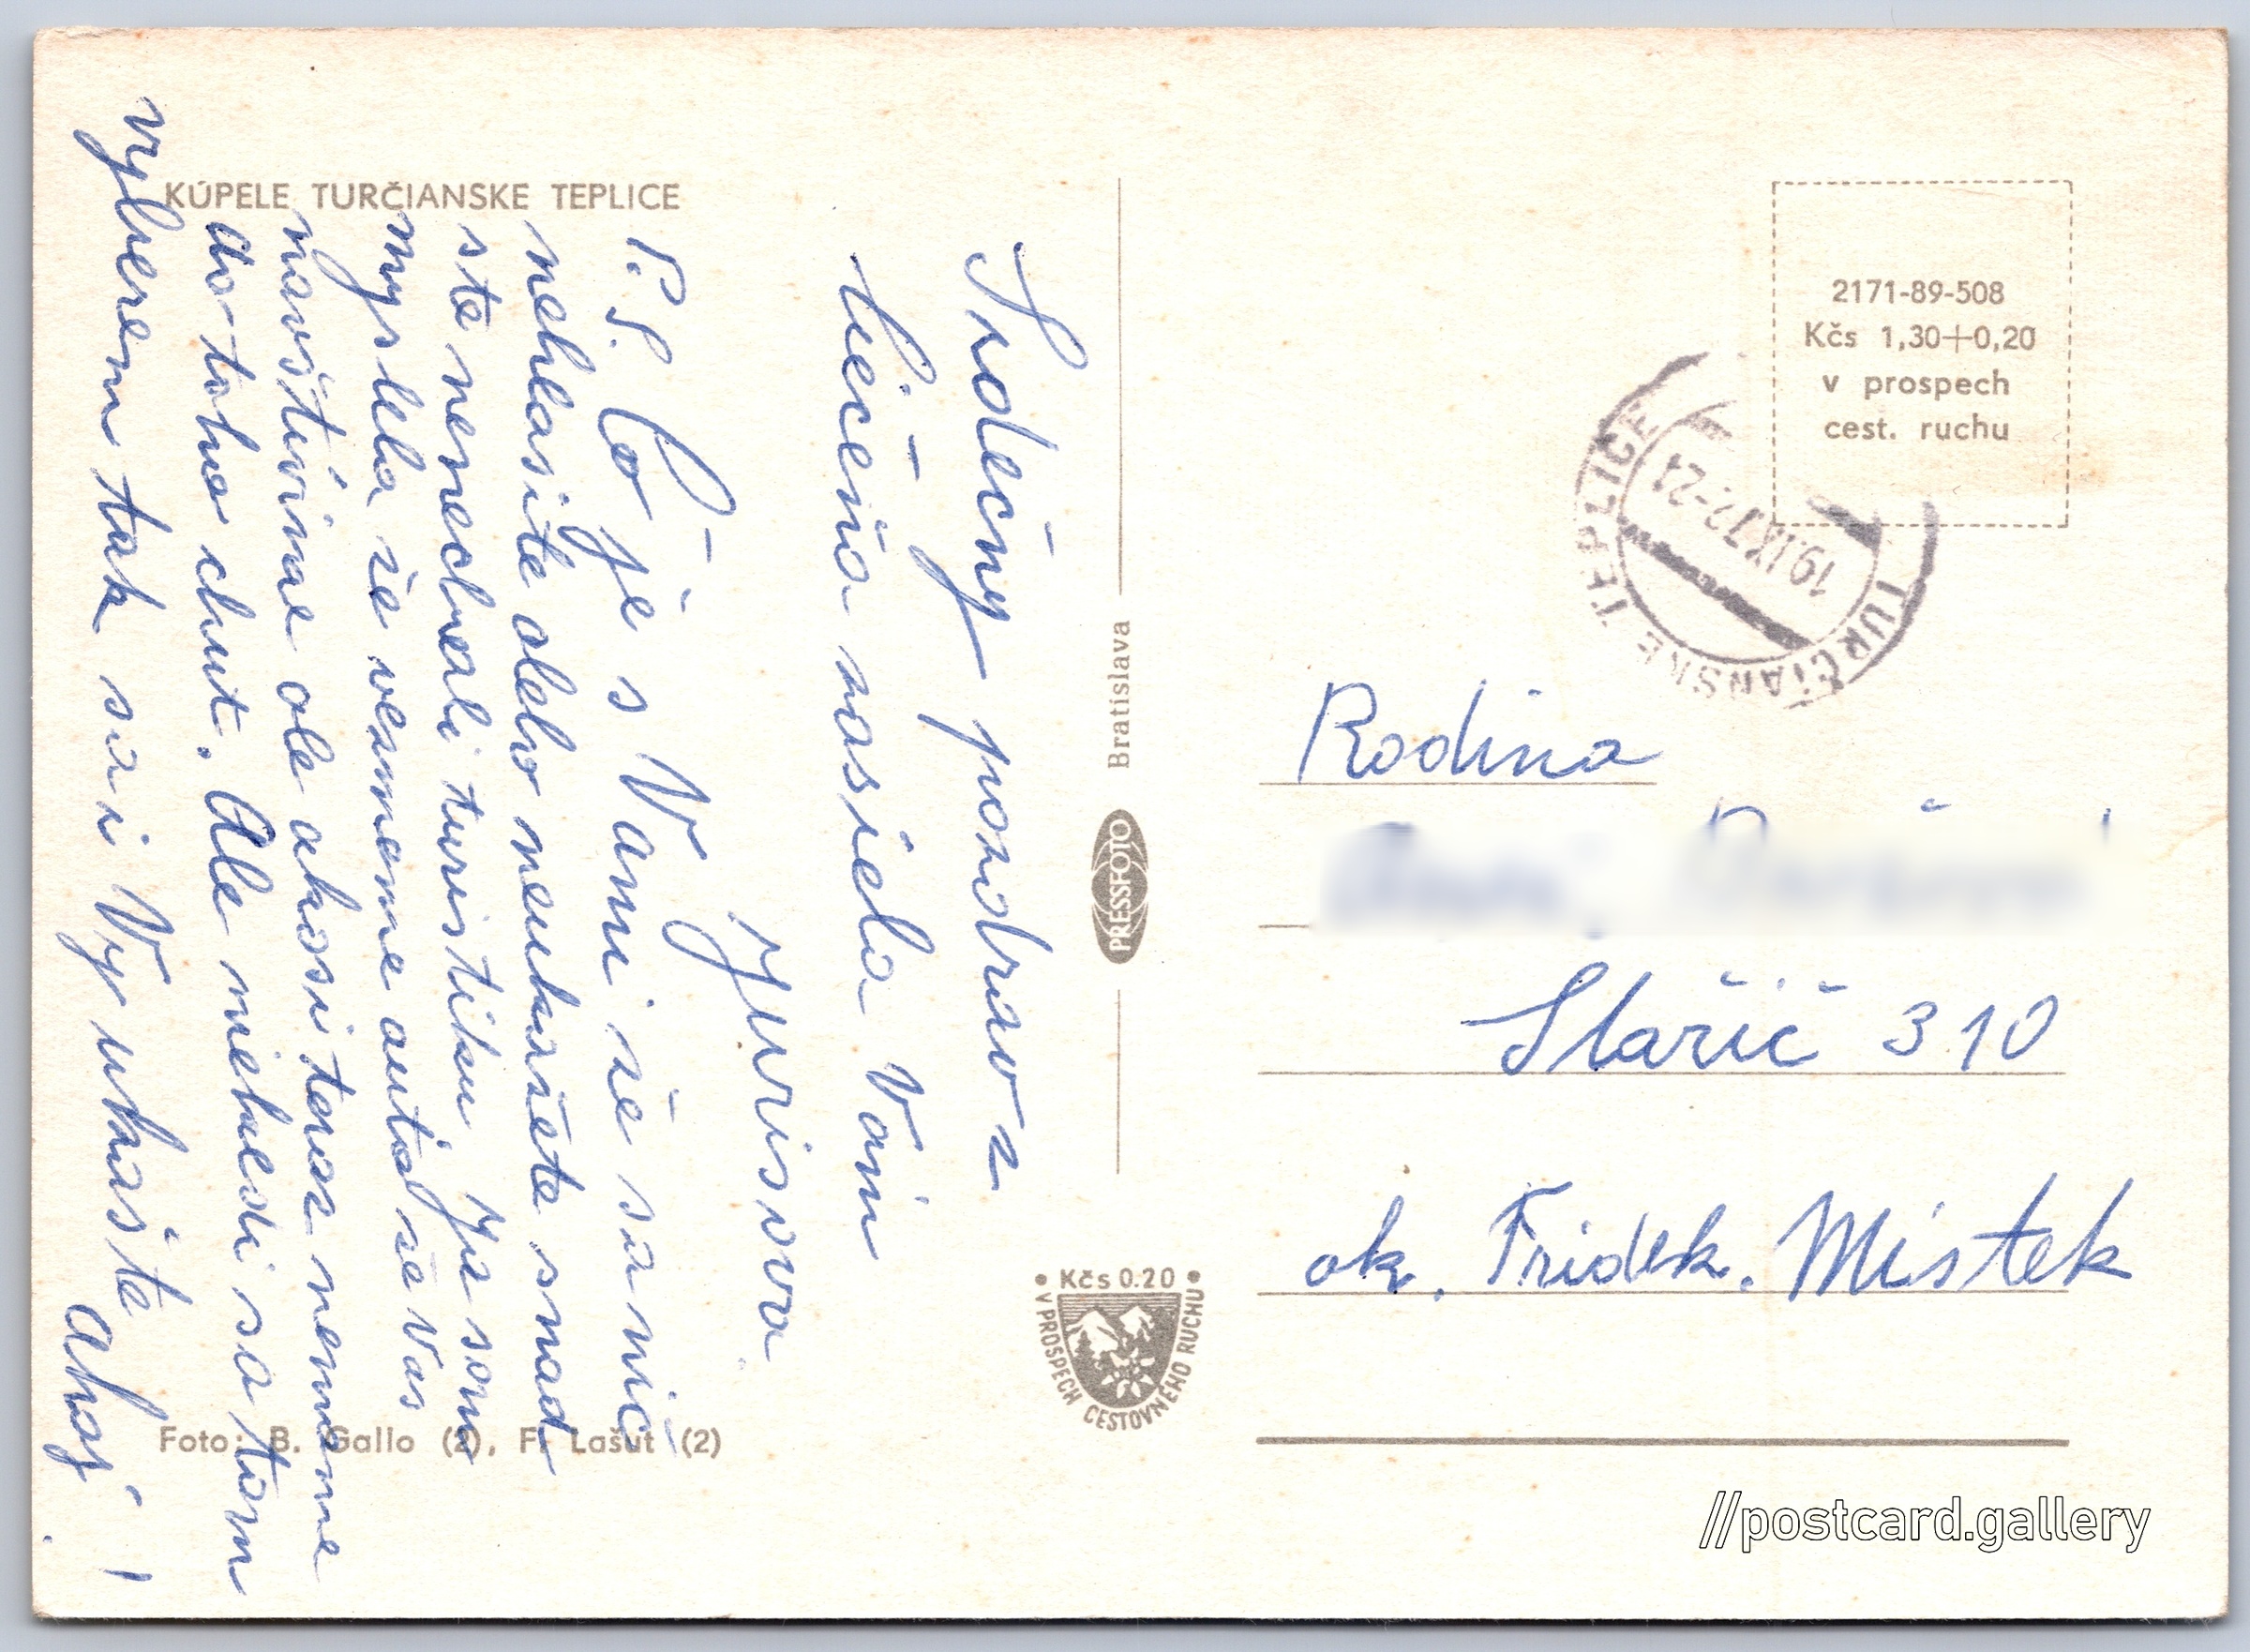 KÚPELE TURČIANSKE TEPLICE
Srdečný pozdrav z
liečenia zasiela Vám
Jurisova
P.S. Čo je s Vami že sa nič
nehlasite alebo neukažete snad
ste nenechali turistiku, Ja som
myslela že vezmeme auto a Vas
navštívime ale akosi teraz nemame
do toho chut. Ale niekedi sa tam
vyberem tak sa i Vy ukašte
Ahoj!
Foto: B. Gallo (2), F. Lašut (2)
Bratislava
PRESSFOTO
• Kčs 0.20 •
V PROSPECH CESTOVNÉHO RUCHU
2171-89-508
Kčs 1,30+0,20
v prospech
cest. ruchu
TURČIANSKE TEPLICE
19.IX.72-24
Rodina
Staříč 310
ok. Fridek. Mistek
//postcard.gallery